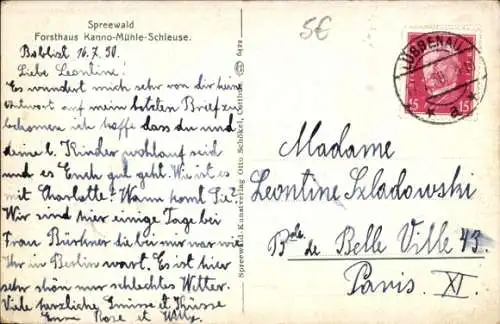 Spreewald
Forsthaus Kanno-Mühle-Schleuse.
16.7.30.
Liebe Leontine!
Es wundert mich sehr von dir keine
Antwort auf mein letzten Brief zu
bekomen ich hoffe dass du und
deine l. Kinder wohlauf seid
und es Euch gut geht. Wie ist es
mit Charlotte? Wann komt Sie?
Wir sind hier einige Tage bei
Frau Bürkner die bei mir war wie
Ihr in Berlin wart. Es ist hier
sehr schön nur schlechtes Wetter.
Viele herzliche Grüsse et Küsse
Eure Rose et Willy
6422
Spreewald-Kunstverlag Otto Schökel, Cottbus
5€
LÜBBENAU
* * a
15 15
Madame
Leontine Szladowski
Bde de Belle Ville 43
Paris XI.